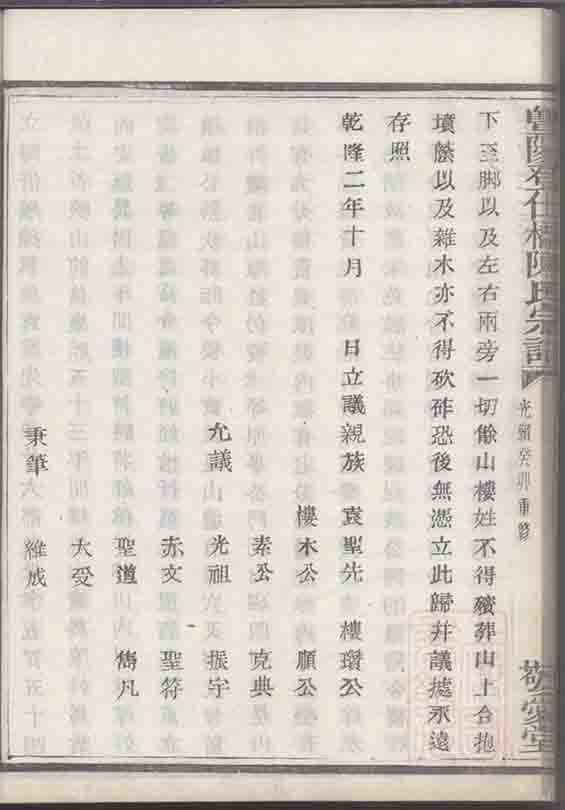 陳氏宗譜
光緒癸卯重修
敬
堂
下至脚以及左右兩旁一切餘山樓姓不得殯葬山上合抱
墳蔭以及雜木亦不得砍砟恐後無憑立此歸幷議據永遠
存照
乾隆二年十月 日立議親族 袁聖先 樓瑨公
樓木公 順公
素公 克典
允議 光祖 振宇
赤文 聖符
聖道 雋凡
大受
秉筆 維成